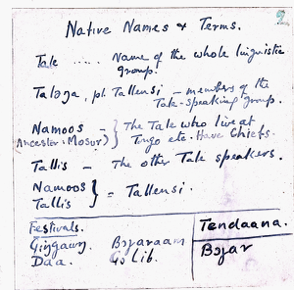 9
Native Names & Terms.
Tale ..... Name of the whole linguistic
group.
Talɔga, pl. Tallensi – members of the
Tale-speaking group.
Namoos – } The Tale who live at
(Ancester: Mosur) Tongo etc. Have Chiefs.
Tallis – The other Tale speakers.
Namoos }
Tallis } = Tallensi.
Festivals. Tendaana.
Giŋgaung. Bɔɣaraam Bɔɣar
Daa. Gɔ Lib.